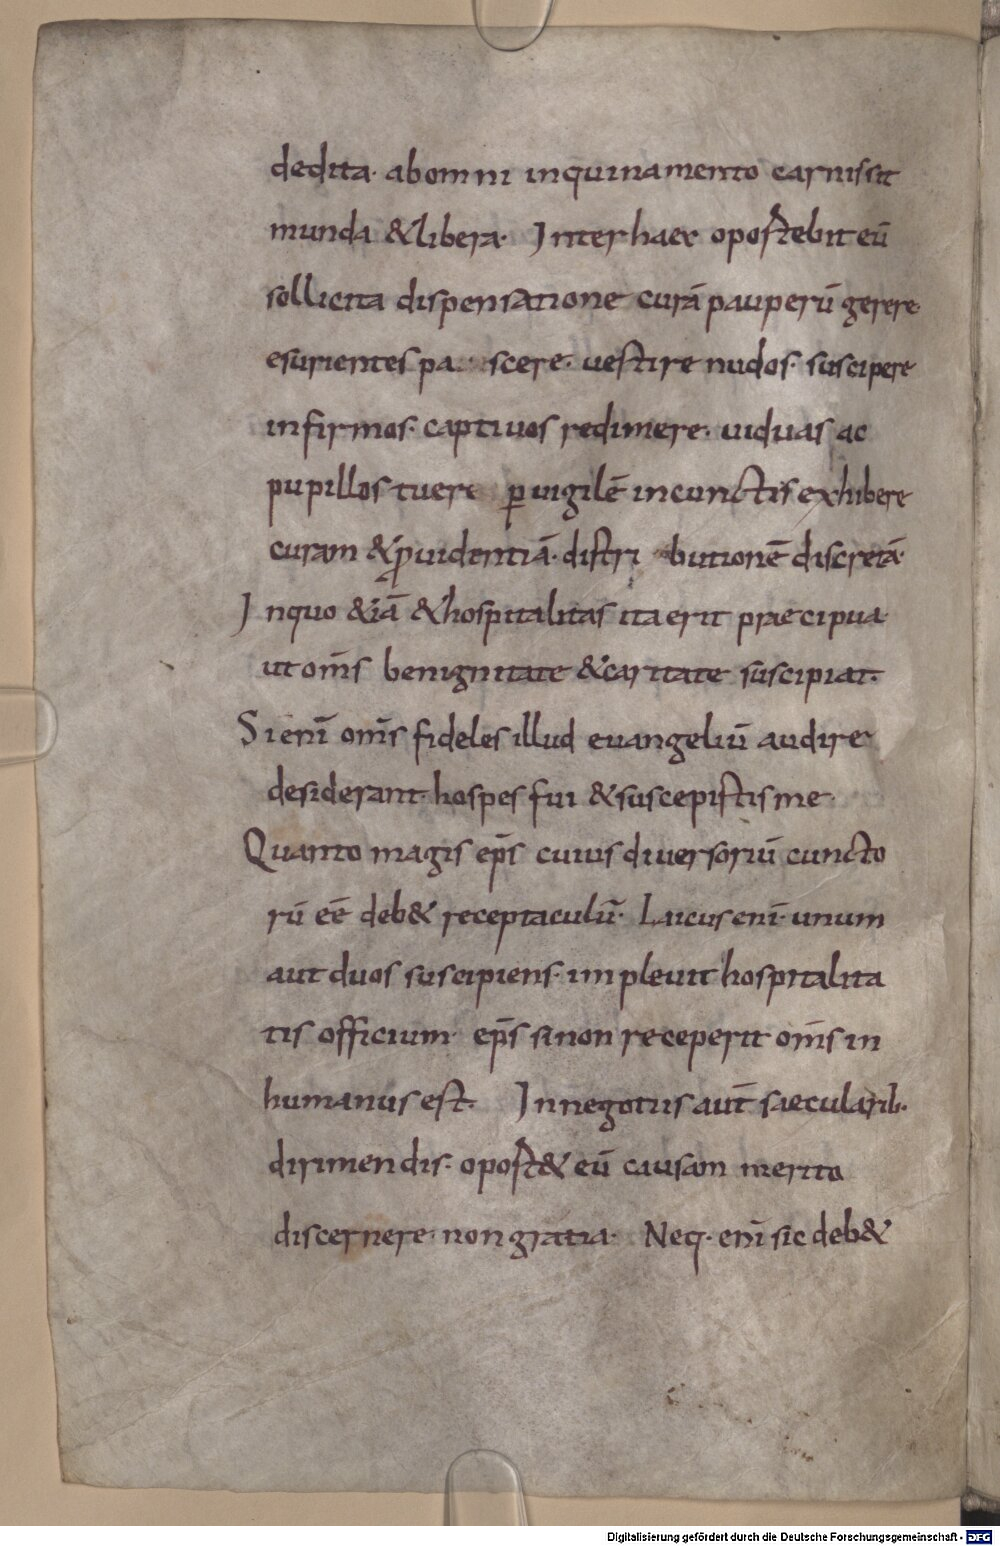 dedita· abomni inquinamento carnissit
munda &libera· Interhaec oportebit eū
sollicita dispensatione curā pauperū gerere·
esurientes pa scere· uestire nudos· suscipere
infirmos· captiuos redimere· uiduas ac
pupillos tuere ꝑuigilē incunctis exhibere
curam &ꝓuidentiā· distri butionē discretā·
Inquo &iā &hospitalitas itaerit praecipua
ut om̄s benignitate &caritate suscipiat·
Sienī om̄s fideles illud euangeliū audire
desiderant· hospes fui &suscepistisme·
Quanto magis ep̄s cuius diuersoriū cuncto
rū eē deb& receptaculū· Laicus enī· unum
aut duos suscipiens· impleuit hospitalita
tis officium· ep̄s sinon receperit om̄s in
humanus est· Innegotiis aut̄ saecularib·
dirimendis· oport& eū causam merito
discernere· non gratia· Neq· enī sic deb&
Digitalisierung gefördert durch die Deutsche Forschungsgemeinschaft - DFG